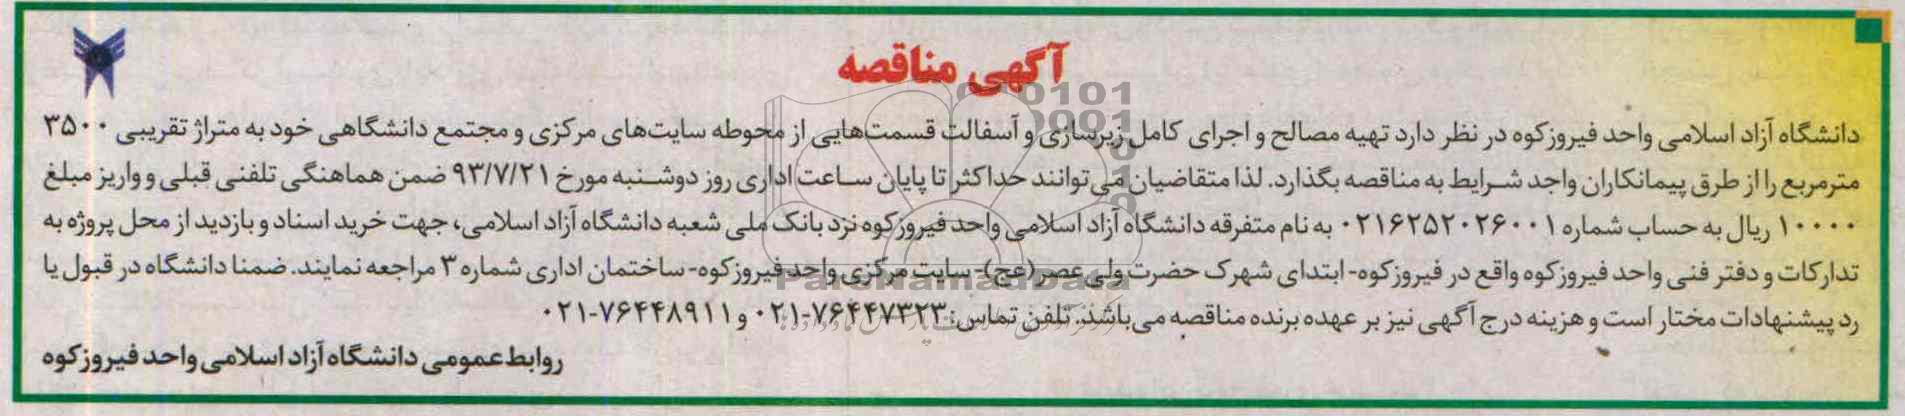 آگهی مناقصه
دانشگاه آزاد اسلامی واحد فیروزکوه در نظر دارد تهیه مصالح و اجرای کامل زیرسازی و آسفالت قسمت‌هایی از محوطه سایت‌های مرکزی و مجتمع دانشگاهی خود به متراژ تقریبی ۳۵۰۰
مترمربع را از طرق پیمانکاران واجد شرایط به مناقصه بگذارد. لذا متقاضیان می‌توانند حداکثر تا پایان ساعت اداری روز دوشنبه مورخ ۹۳/۷/۲۱ ضمن هماهنگی تلفنی قبلی و واریز مبلغ
۱۰۰۰۰ ریال به حساب شماره ۰۲۱۶۲۵۲۰۲۶۰۰۱ به نام متفرقه دانشگاه آزاد اسلامی واحد فیروزکوه نزد بانک ملی شعبه دانشگاه آزاد اسلامی، جهت خرید اسناد و بازدید از محل پروژه به
تدارکات و دفتر فنی واحد فیروزکوه واقع در فیروزکوه- ابتدای شهرک حضرت ولی عصر (عج)- سایت مرکزی واحد فیروزکوه- ساختمان اداری شماره ۳ مراجعه نمایند. ضمنا دانشگاه در قبول یا
رد پیشنهادات مختار است و هزینه درج آگهی نیز بر عهده برنده مناقصه می‌باشد. تلفن تماس: ۷۶۴۴۷۳۲۳-۰۲۱ و ۷۶۴۴۸۹۱۱-۰۲۱
روابط عمومی دانشگاه آزاد اسلامی واحد فیروزکوه
ParsNamadData